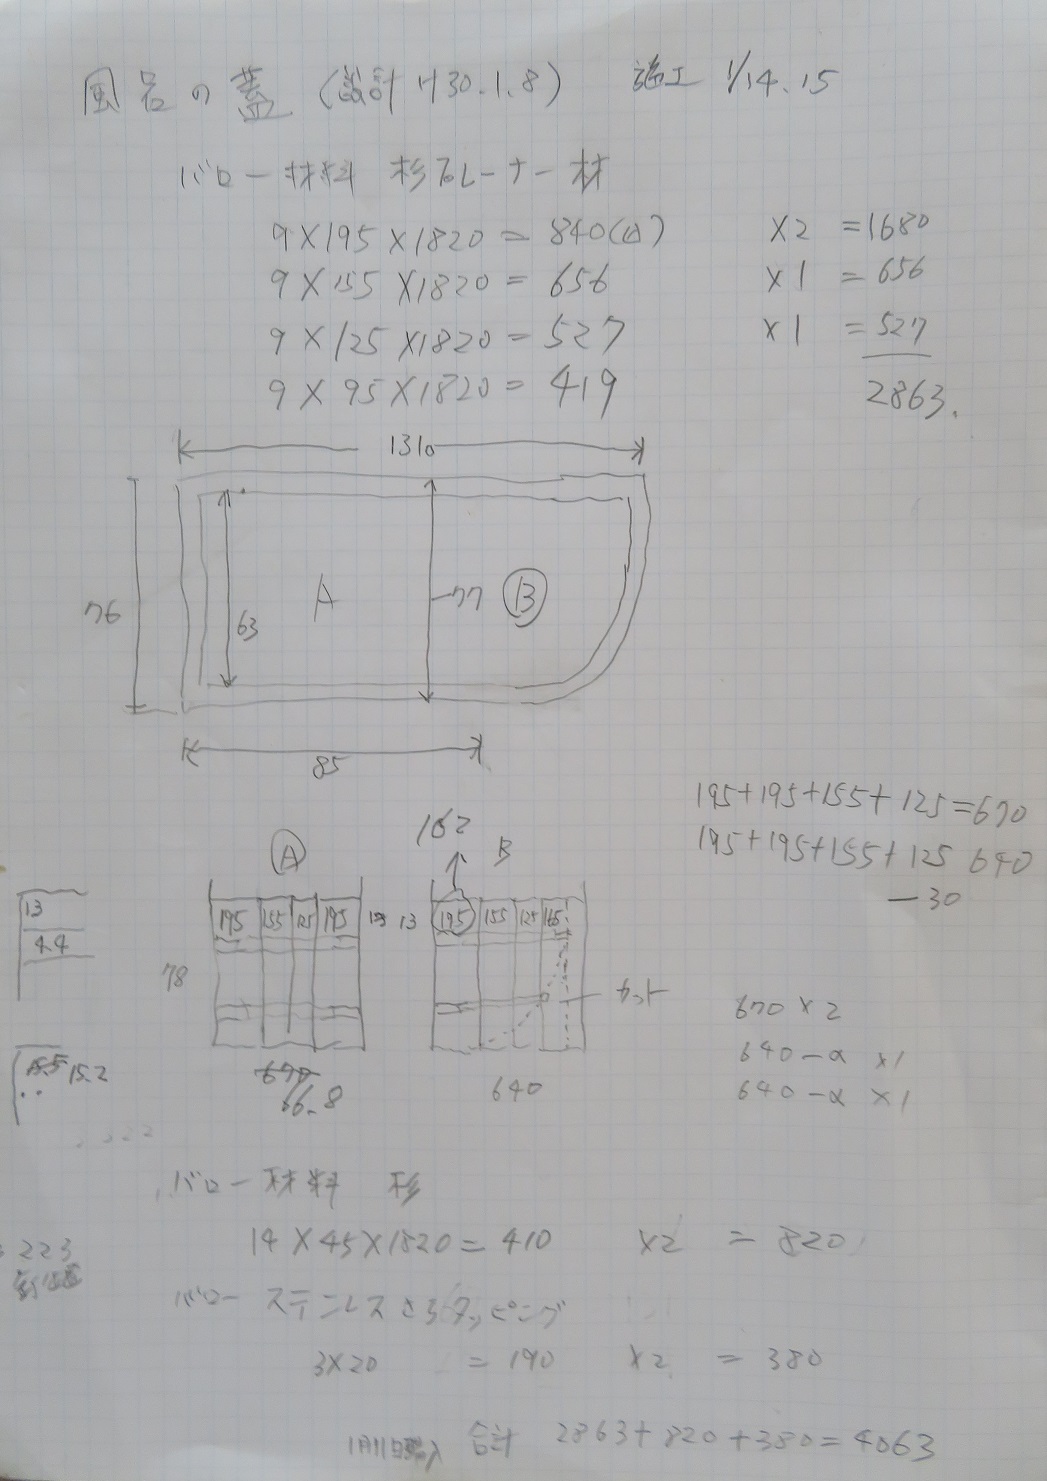 風呂の蓋 (設計 H30.1.8) 施工 1/14.15
バロー材料 杉プレーナー材
9×195×1820=840(凸) ×2 =1680
9×155×1820=656 ×1 =656
9×125×1820=527 ×1 =527
9×95×1820=419 2863.
1310
76
63
A
77
B
85
195+195+155+125=670
195+195+155+125 640
-30
162
A
B
195 155 125 195 13
13 195 155 125 165
78
カット
670
66.8
640
13
4.4
15.5 15.2
670×2
640-α ×1
640-α ×1
バロー材料 杉
14×45×1820=410 ×2 =820
223
バロー ステンレスさらタッピング
3×20 =190 ×2 =380
1月11日購入 合計 2863+820+380=4063